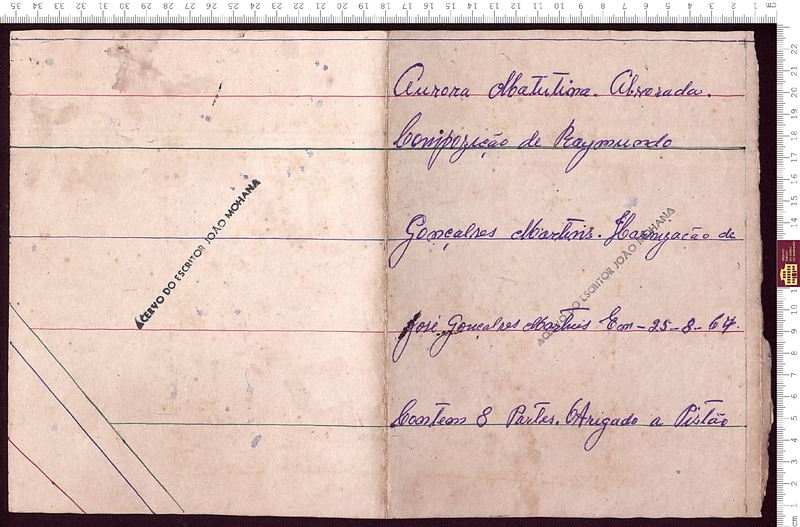 Aurora Matutina. Alvorada.
Compozição de Raymundo
Gonçalves Martins. Harmação de
José Gonçalves Martins Em - 25 - 8 - 67.
Contem 8 Partes. Obrigado a Pistão
ACERVO DO ESCRITOR JOÃO MOHANA
ACERVO DO ESCRITOR JOÃO MOHANA